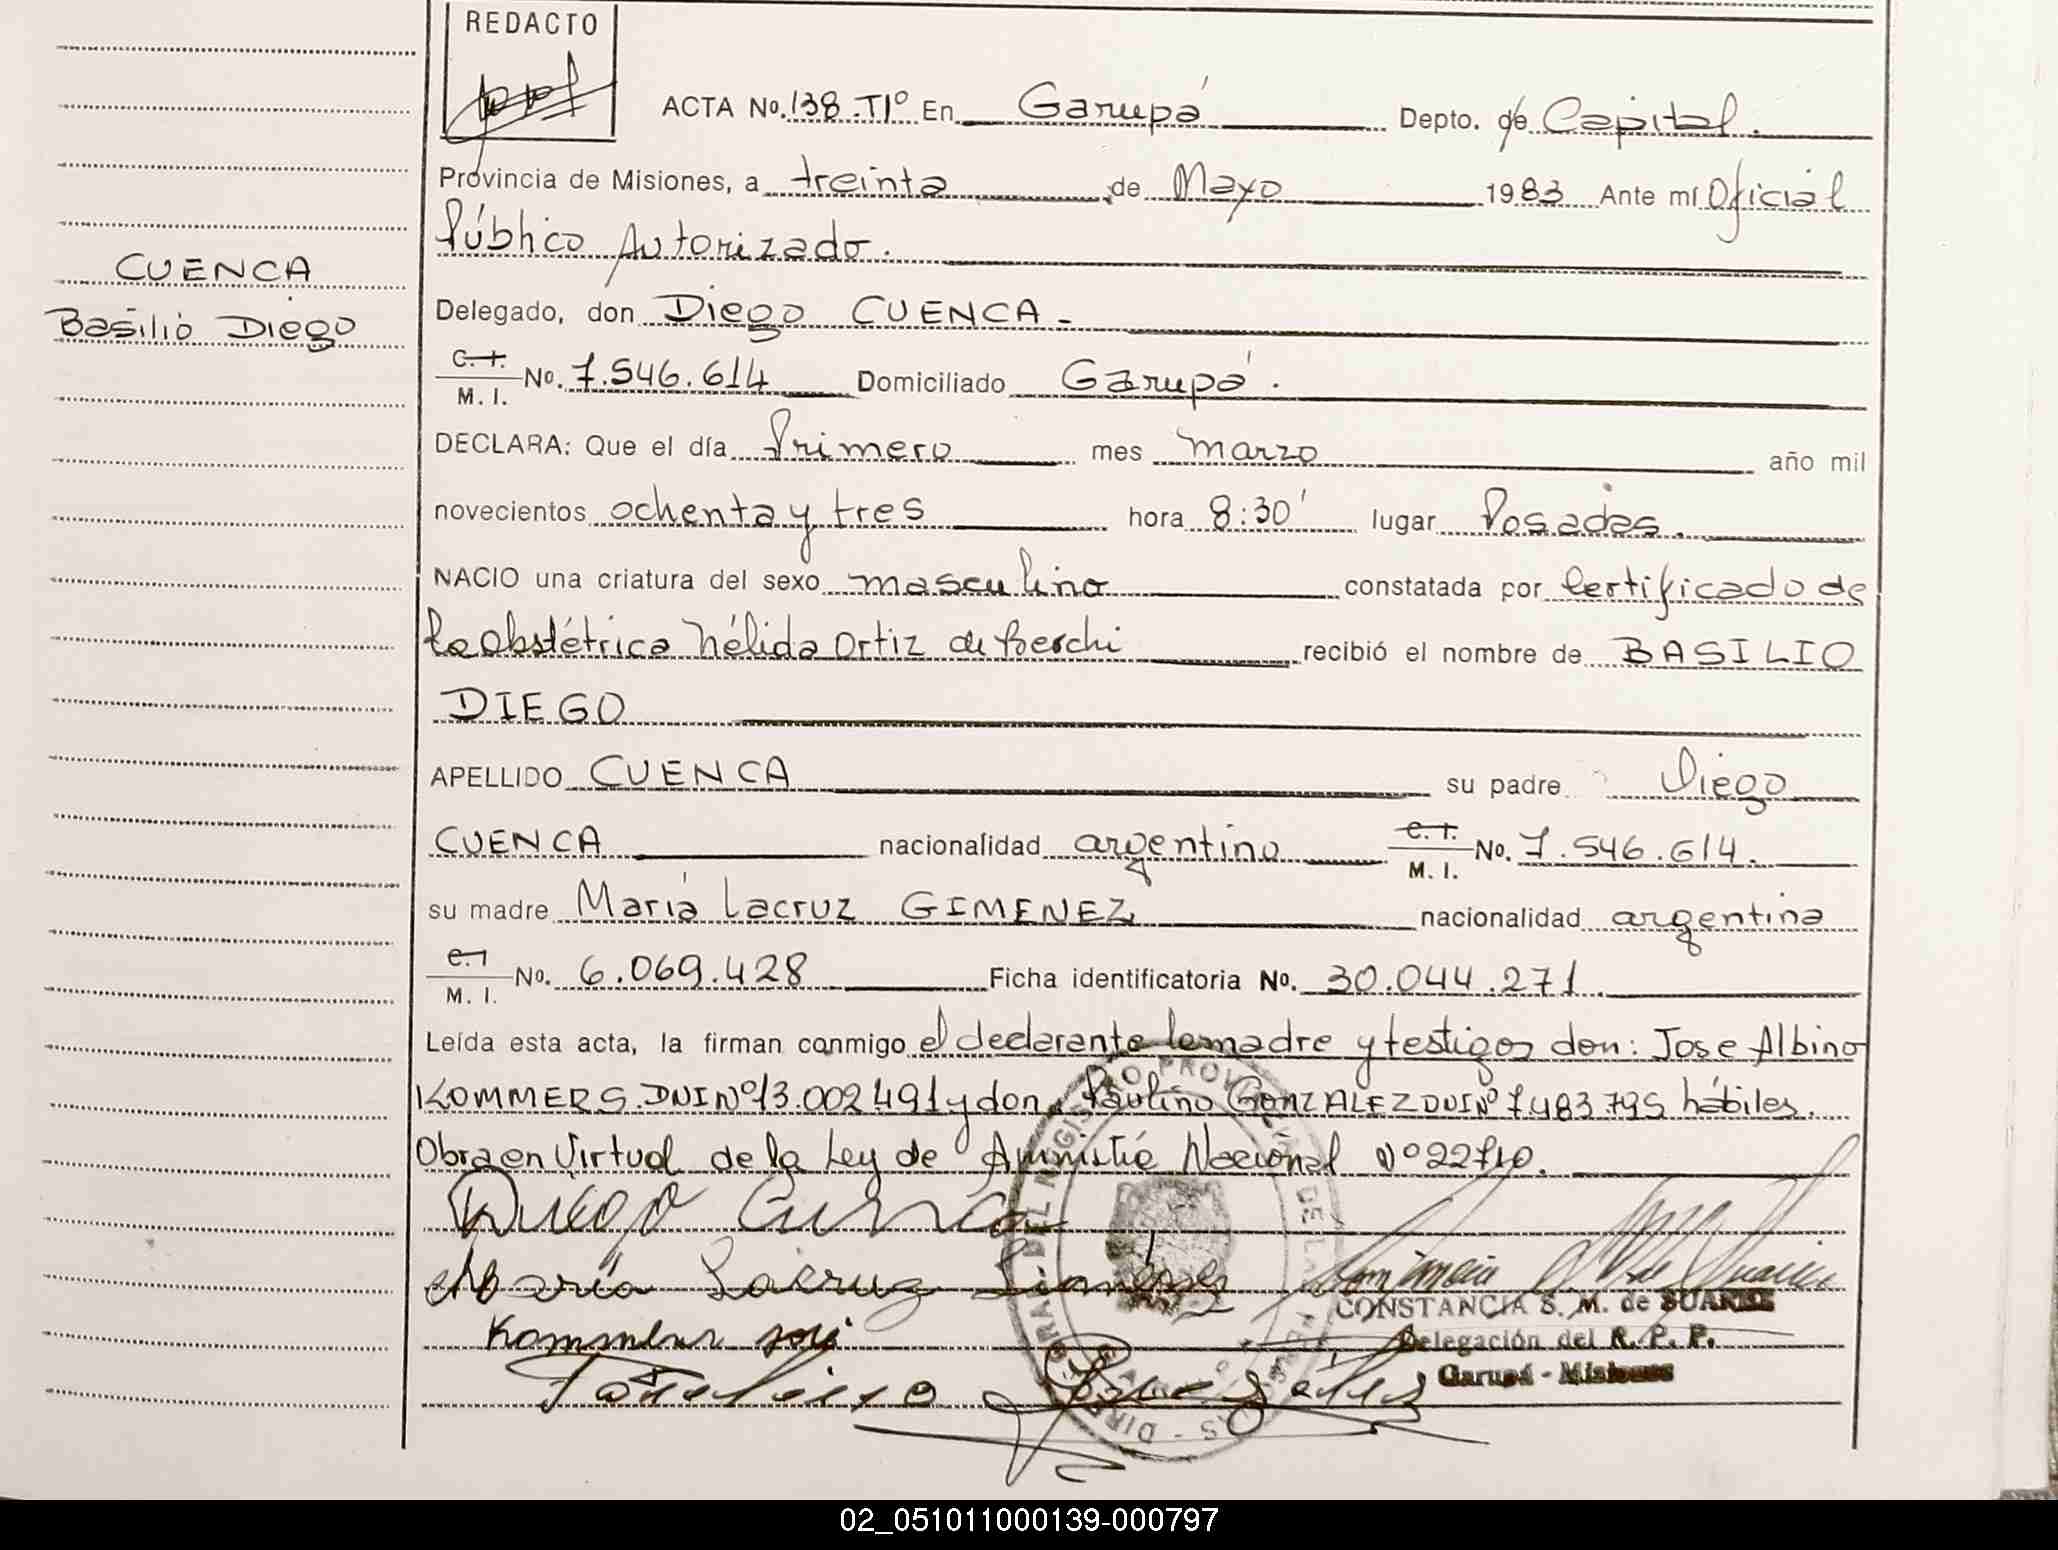 REDACTO
ACTA No. 138.TIº En Garupá Depto. de Capital.
Provincia de Misiones, a treinta de Mayo 1983 Ante mí Oficial
Público Autorizado.
CUENCA
Basilio Diego
Delegado, don Diego CUENCA -
C.I. M. I. No. 7.546.614 Domiciliado Garupá.
DECLARA: Que el día Primero mes marzo año mil
novecientos ochenta y tres hora 8:30' lugar Posadas.
NACIO una criatura del sexo masculino constatada por Certificado de
la obstétrica Nélida Ortiz de recibió el nombre de BASILIO
DIEGO
APELLIDO CUENCA su padre Diego
CUENCA nacionalidad argentino C.I. M. I. No. 7.546.614.
su madre María Lacruz GIMENEZ nacionalidad argentina
C.I M. I. No. 6.069.428 Ficha identificatoria No. 30.044.271.
Leída esta acta, la firman conmigo el declarante la madre y testigos don: Jose Albino
KOMMERS. DNI Nº 13.002491 y don Paulino GONZALEZ DNI Nº 7.483.795 hábiles.
Obra en Virtud de la Ley de Amnistié Nacional Nº 22710.
Diego Cuenca
María Lacruz Gimenez
CONSTANCIA S. M. de SUAREZ
Kommers José
Delegación del R. P. P.
Garupá - Misiones
DEL REGISTRO PROVINCIAL DE LAS PERSONAS
02_051011000139-000797